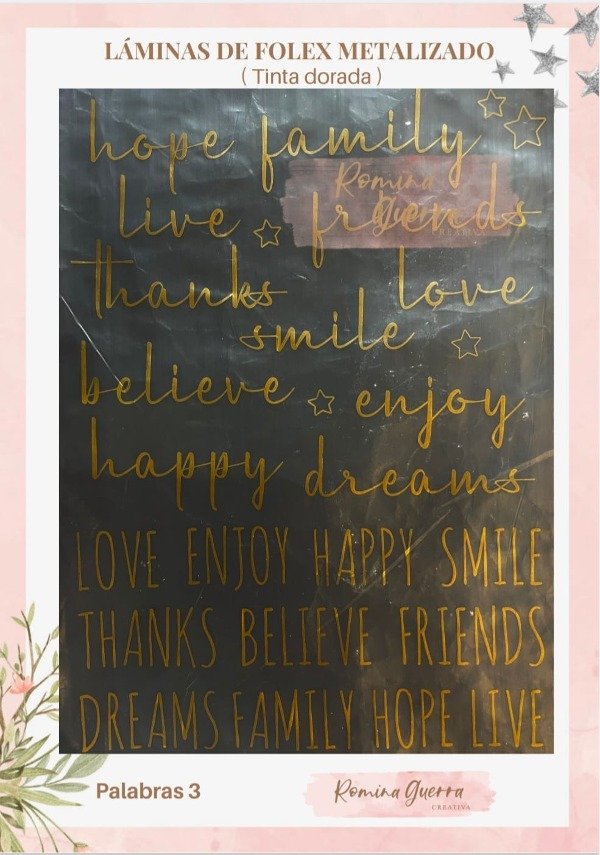 LÁMINAS DE FOLEX METALIZADO
( Tinta dorada )
hope family
Romina
live friends
Guerra
CREATIVA
thanks love
smile
believe enjoy
happy dreams
LOVE ENJOY HAPPY SMILE
THANKS BELIEVE FRIENDS
DREAMS FAMILY HOPE LIVE
Palabras 3
Romina Guerra
CREATIVA